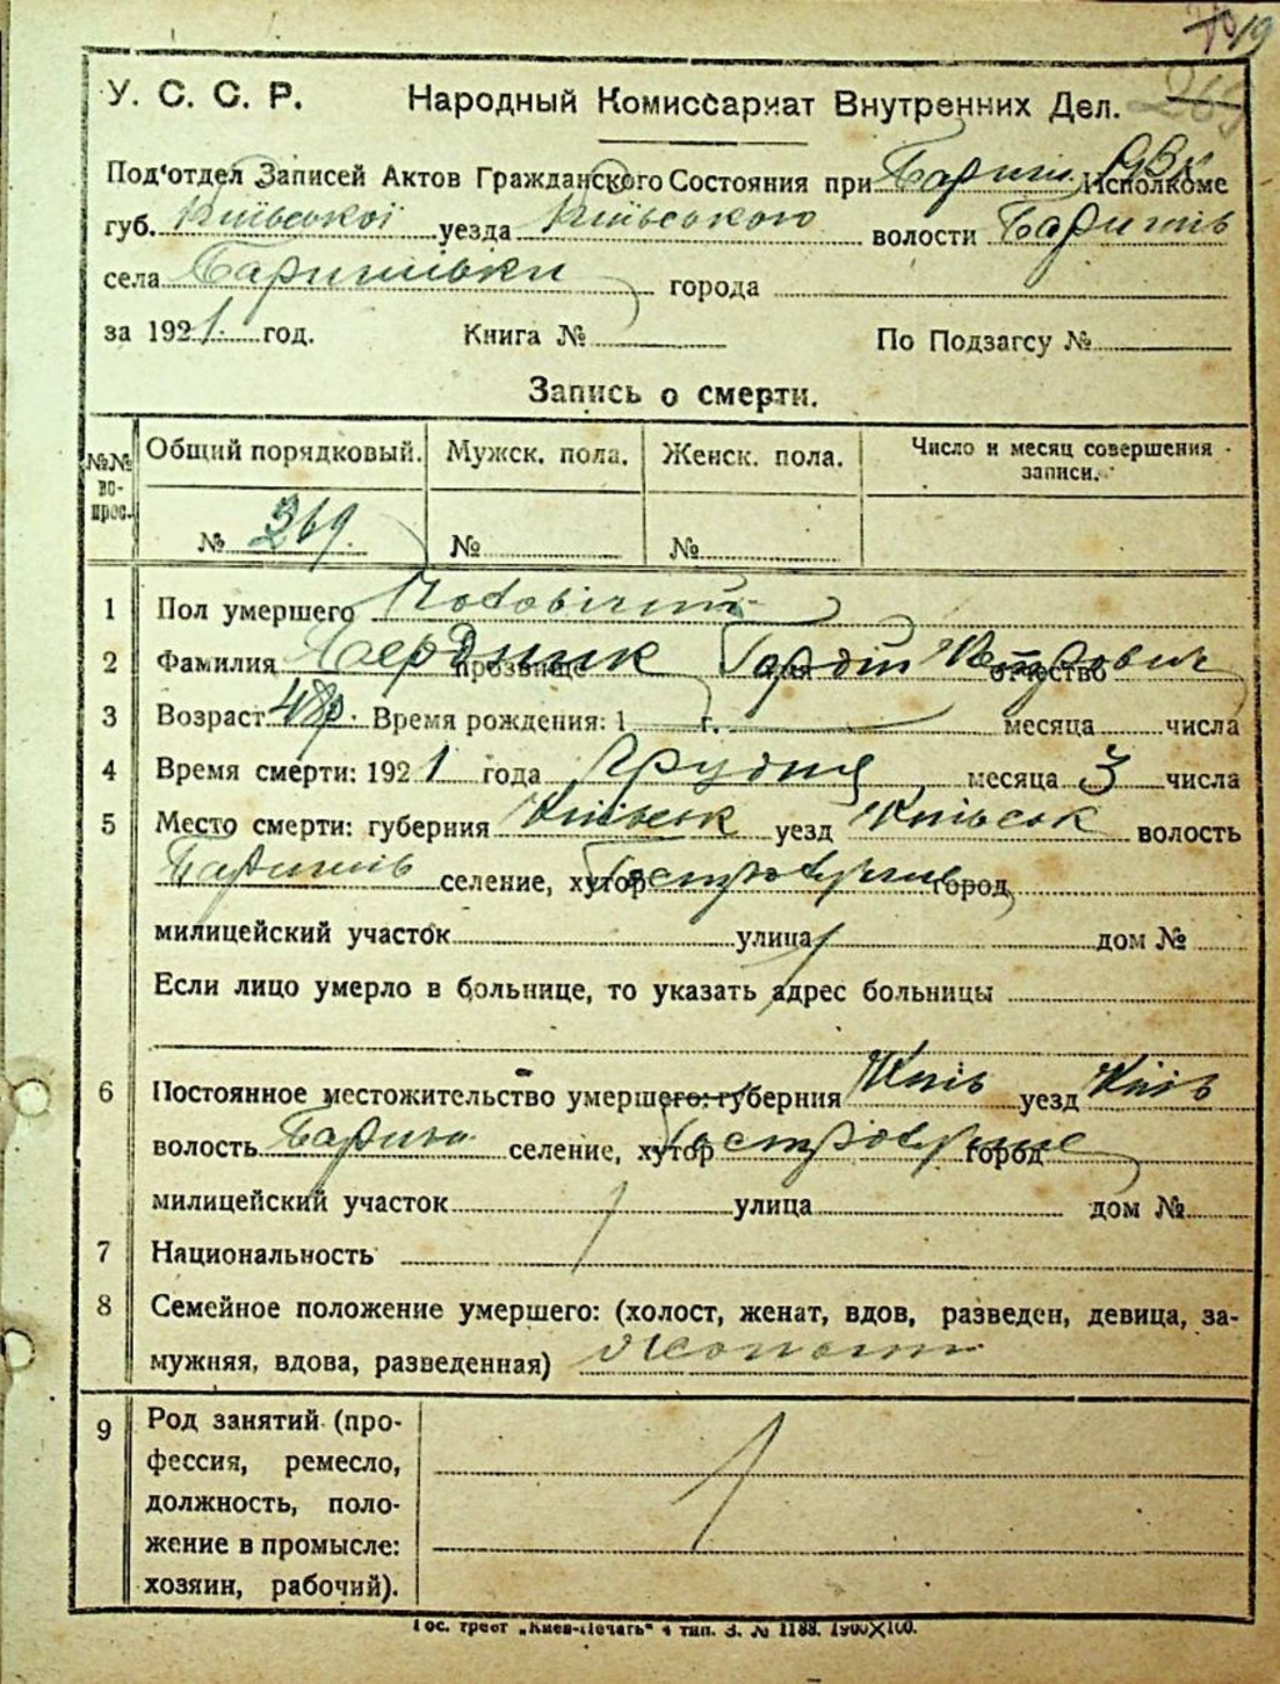 19
269
У. С. С. Р. Народный Комиссариат Внутренних Дел.
Под'отдел Записей Актов Гражданского Состояния при Бориш. Исполкоме
губ. Київської уезда Київського волости Баришів
села Баришівки города
за 1921. год. Книга № По Подзагсу №
Запись о смерти.
№№ во-прос. Общий порядковый. Мужск. пола. Женск. пола. Число и месяц совершения записи.
№ 269. № №
1 Пол умершего
2 Фамилия Бердник прозвище Гордій имя Петрович отчество
3 Возраст 48 р. Время рождения: 1 г. месяца числа
4 Время смерти: 1921 года Грудня месяца 3 числа
5 Место смерти: губерния Київськ уезд Київськ волость
Баришів селение, хутор город
милицейский участок улица дом №
Если лицо умерло в больнице, то указать адрес больницы
6 Постоянное местожительство умершего: губерния Київ уезд Київ
волость Бориш селение, хутор город
милицейский участок улица дом №
7 Национальность
8 Семейное положение умершего: (холост, женат, вдов, разведен, девица, за-
мужняя, вдова, разведенная) Жонатий
9 Род занятий (про-
фессия, ремесло,
должность, поло-
жение в промысле:
хозяин, рабочий).
Гос. трест „Киев-Печать" 4 тип. З. № 1188. 1900X100.